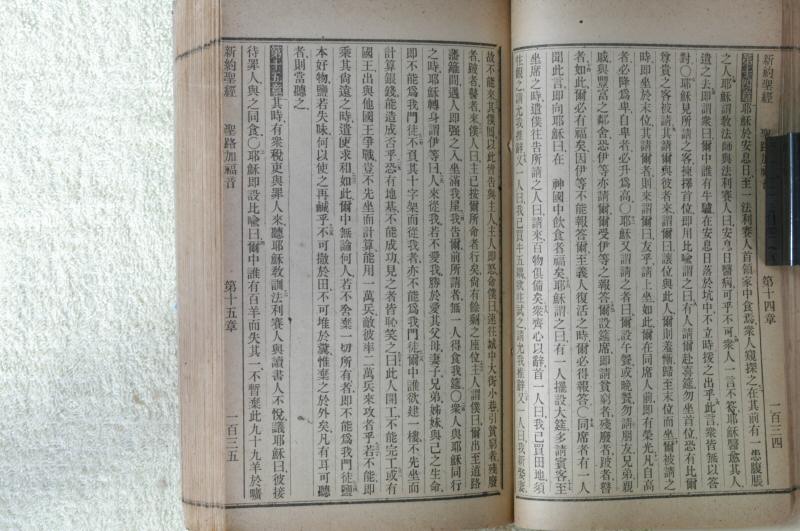 新約聖經　聖路加福音　第十四章　一百三四
第十四章耶穌於安息日、至一法利賽人首領家中食焉、衆人窺探之、在其前有一患臌脹
之人、耶穌謂教法師與法利賽人曰、安息日醫病可乎不可、衆人一言不答、耶穌醫愈其人
遣之去、即謂衆曰、爾中誰有牛驢在安息日落於坑中、不立時援之出乎、此言衆皆無以答
對○耶穌見所請之客揀擇首位、即用比喻謂之曰、有人請爾赴喜筵、勿坐首位、恐有比爾
尊貴之客被請、其請爾與彼者來謂爾曰、讓位與此人、爾則羞慚歸至末位而坐、爾被請之
時、即坐於末位、其請爾者、則來謂爾曰、友乎、請上坐、如此爾在同席人前即有榮光、凡自高
者必降爲卑、自卑者必升爲高○耶穌又謂請之者曰、爾設午餐或晚餐、勿請朋友兄弟親
戚與豐富之鄰舍、恐伊等亦請爾、爾受伊等之報答、爾設筵席、即請貧窮者、殘廢者、跛者、瞽
者、如此爾必有福矣、因伊等不能報答爾、至義人復活之時、爾必得報答○同席者有一人
聞此言、即向耶穌曰、在　神國中飲食者福矣、耶穌謂之曰、有一人擺設大筵、多請賓客、至
坐席之時、遣僕往告所請之人曰、請來、百物俱備矣、衆齊心以辭、首一人曰、我已買田地、須
往觀之、請允我推辭、又一人曰、我已買牛五軛、欲往試之、請允我推辭、又一人曰、我新娶妻、
故不能來、其僕回以此皆告與主人、主人即怒、命僕曰、速往城中大街小巷、引貧窮者、殘廢
者、跛者、瞽者來、僕人曰、主、已按爾所命者行矣、尚有餘剩之座位、主人謂僕曰、爾出至道路
藩籬間、遇人即强之入、坐滿我屋、我告爾、前所請者、無一人得食我筵○衆人與耶穌同行
之時、耶穌轉身謂伊等曰、人來從我、若不愛我勝於愛其父母、妻子、兄弟、姊妹、與己之生命、
即不能爲我門徒、不負其十字架而從我者、亦不能爲我門徒、爾中誰欲建一樓、不先坐而
計算銀錢、能造成否乎、恐有地基、不能成功、見之者皆恥笑之曰、此人開工、不能完工、或有
國王出與他國王爭戰、豈不先坐而計算、能用一萬兵、敵彼率二萬兵來攻者乎、若不能、即
乘其尚遠之時、遣使求和、如此、爾中無論何人、若不舍棄一切所有者、即不能爲我門徒、鹽
本好物、鹽若失味、何以使之再鹹乎、不可撒於田、不可堆於糞、惟棄之於外矣、凡有耳可聽
者、則當聽之、
第十五章其時、有衆稅吏與罪人來、聽耶穌教訓、法利賽人與讀書人不悅、議耶穌曰、彼接
待罪人、與之同食○耶穌即設比喻曰、爾中誰有百羊而失其一、不暫棄此九十九羊於曠
新約聖經　聖路加福音　第十五章　一百三五